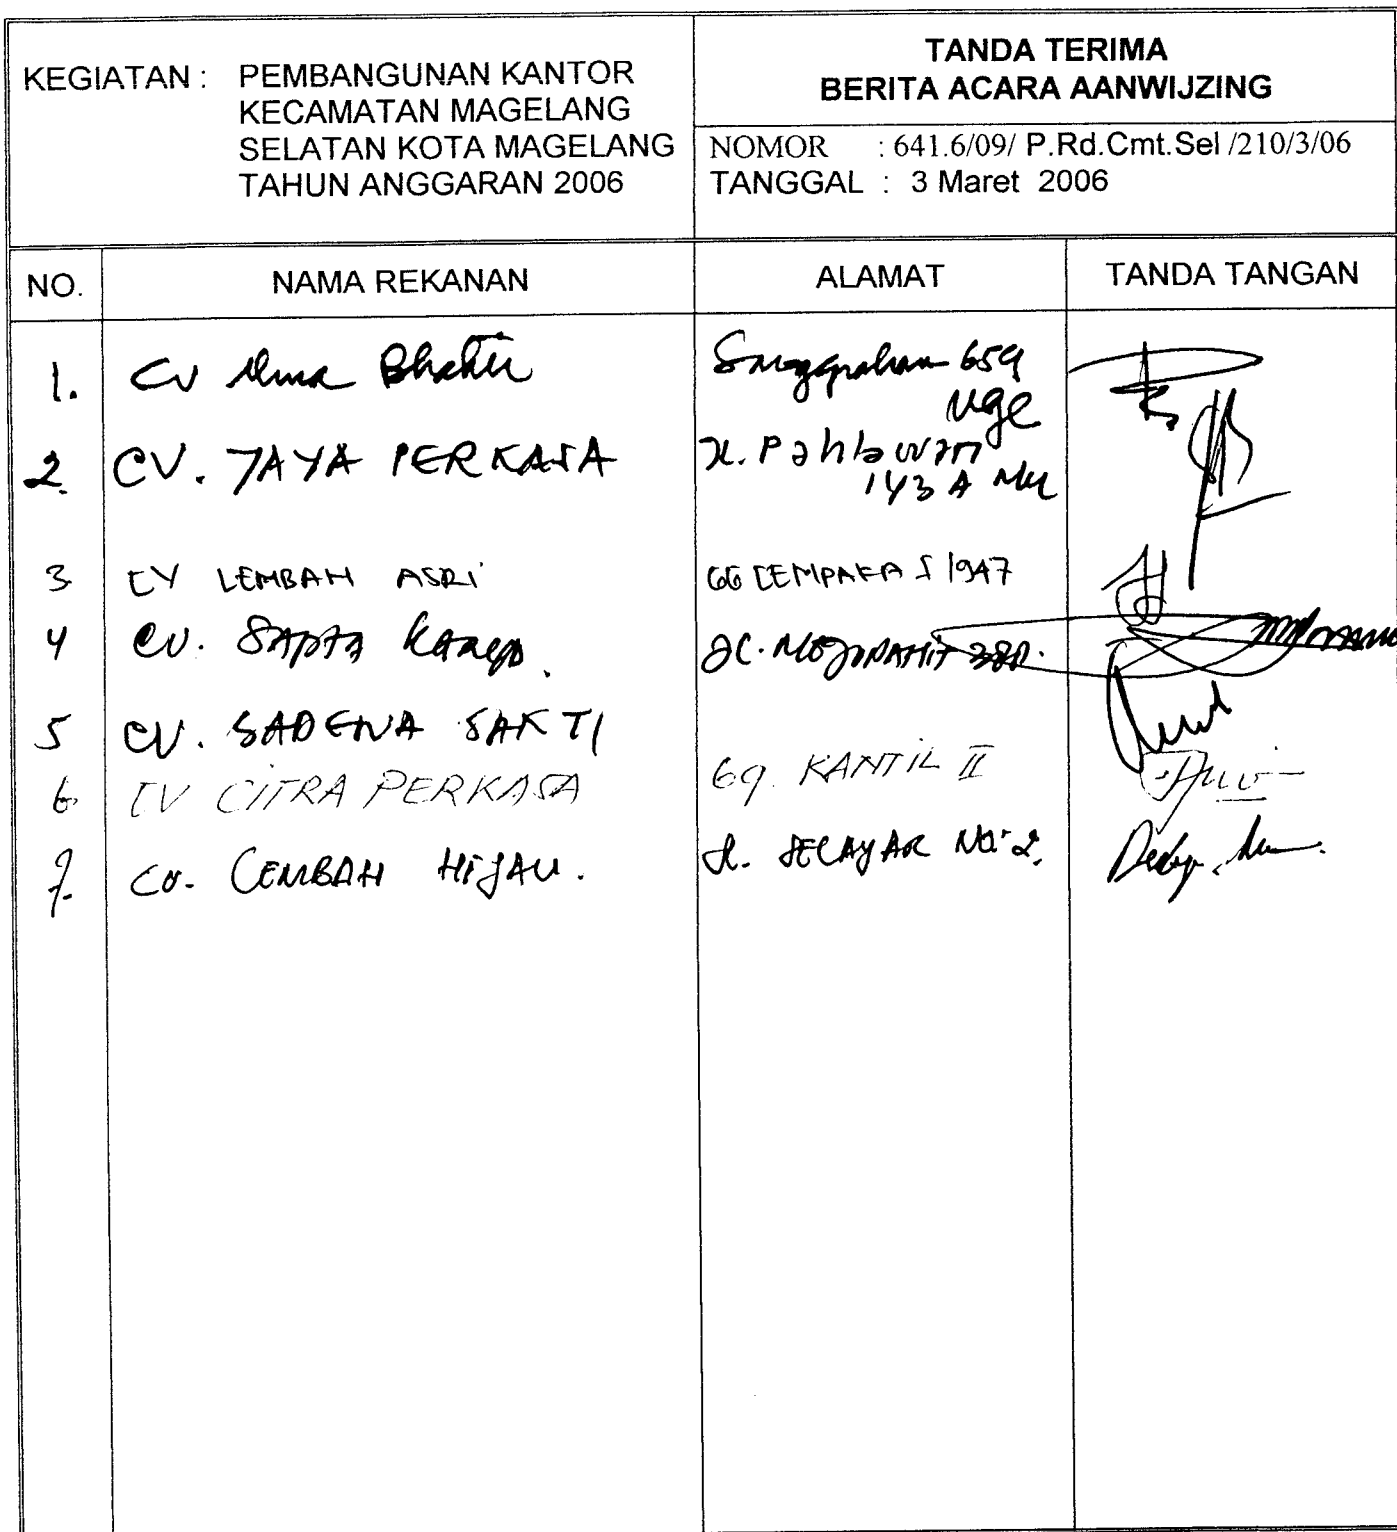 KEGIATAN : PEMBANGUNAN KANTOR
KECAMATAN MAGELANG
SELATAN KOTA MAGELANG
TAHUN ANGGARAN 2006
TANDA TERIMA
BERITA ACARA AANWIJZING
NOMOR : 641.6/09/ P.Rd.Cmt.Sel /210/3/06
TANGGAL : 3 Maret 2006
NO. NAMA REKANAN ALAMAT TANDA TANGAN
1. CV Bhakti 659
2. CV. JAYA PERKASA Jl. Pahlawan
143 A
3 CV LEMBAH ASRI GG CEMPAKA 1947
4 CV. SAPTA Karya. JL. MOJOPAHIT 38D.
5 CV. SADENA SAKTI
6 CV CITRA PERKASA Gg. KANTIL II
7. CV. LEMBAH HIJAU. Jl. SELAYAR NO: 2.